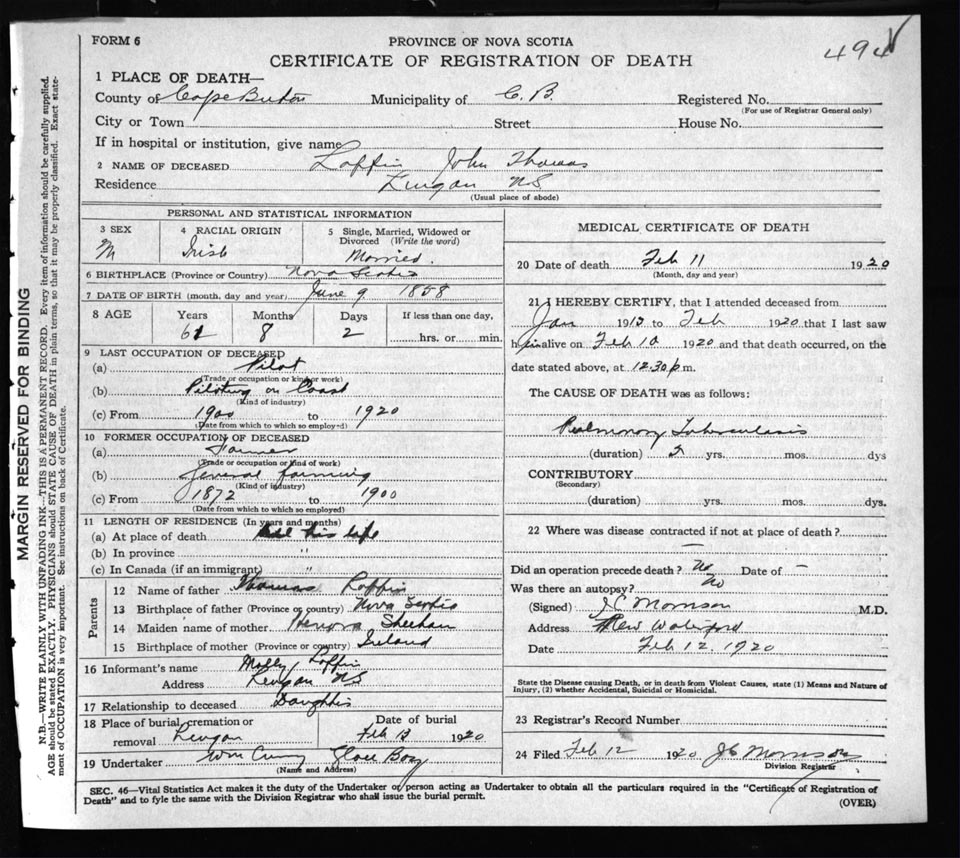 FORM 6
PROVINCE OF NOVA SCOTIA
CERTIFICATE OF REGISTRATION OF DEATH
494
1 PLACE OF DEATH—
County of Cape Breton Municipality of C. B. Registered No.
(For use of Registrar General only)
City or Town Street House No.
If in hospital or institution, give name
2 NAME OF DECEASED Loffin John Thomas
Residence Lingan NS
(Usual place of abode)
MARGIN RESERVED FOR BINDING
N.B.—WRITE PLAINLY WITH UNFADING INK—THIS IS A PERMANENT RECORD. Every item of information should be carefully supplied.
AGE should be stated EXACTLY. PHYSICIANS should STATE CAUSE OF DEATH in plain terms, so that it may be properly classified. Exact state-
ment of OCCUPATION is very important. See instructions on back of Certificate.
PERSONAL AND STATISTICAL INFORMATION
3 SEX M
4 RACIAL ORIGIN Irish
5 Single, Married, Widowed or
Divorced (Write the word)
Married.
6 BIRTHPLACE (Province or Country) Nova Scotia
7 DATE OF BIRTH (month, day and year) June 9 1858
8 AGE Years Months Days If less than one day,
61 8 2 hrs. or min.
9 LAST OCCUPATION OF DECEASED
(a) Pilot
(Trade or occupation or kind or work)
(b) Piloting on Coast
(Kind of industry)
(c) From 1900 to 1920
(Date from which to which so employed)
10 FORMER OCCUPATION OF DECEASED
(a) Farmer
(Trade or occupation or kind of work)
(b) General farming
(Kind of industry)
(c) From 1872 to 1900
(Date from which to which so employed)
11 LENGTH OF RESIDENCE (In years and months)
(a) At place of death All his life
(b) In province "
(c) In Canada (if an immigrant) "
Parents
12 Name of father Thomas Loffin
13 Birthplace of father (Province or country) Nova Scotia
14 Maiden name of mother Henora Sheehan
15 Birthplace of mother (Province or country) Ireland
16 Informant's name Molly Loffin
Address Lingan NS
17 Relationship to deceased Daughter
18 Place of burial, cremation or
removal Lingan
Date of burial
Feb 13 1920
19 Undertaker Wm Curry Glace Bay
(Name and Address)
MEDICAL CERTIFICATE OF DEATH
20 Date of death Feb 11 1920
(Month, day and year)
21 I HEREBY CERTIFY, that I attended deceased from
Jan 1913 to Feb 1920 that I last saw
him alive on Feb 10 1920 and that death occurred, on the
date stated above, at 12.30 p.m.
The CAUSE OF DEATH was as follows:
Pulmonary Tuberculosis
(duration) 2 yrs. mos. dys
CONTRIBUTORY
(Secondary)
(duration) yrs. mos. dys.
22 Where was disease contracted if not at place of death?
—
Did an operation precede death? No Date of —
Was there an autopsy? No
(Signed) J C Morrison M.D.
Address New Waterford
Date Feb 12, 1920
State the Disease causing Death, or in death from Violent Causes, state (1) Means and Nature of
Injury, (2) whether Accidental, Suicidal or Homicidal.
23 Registrar's Record Number
24 Filed Feb 12 1920 J C Morrison
Division Registrar
SEC. 46—Vital Statistics Act makes it the duty of the Undertaker or person acting as Undertaker to obtain all the particulars required in the "Certificate of Registration of
Death" and to fyle the same with the Division Registrar who shall issue the burial permit.
(OVER)